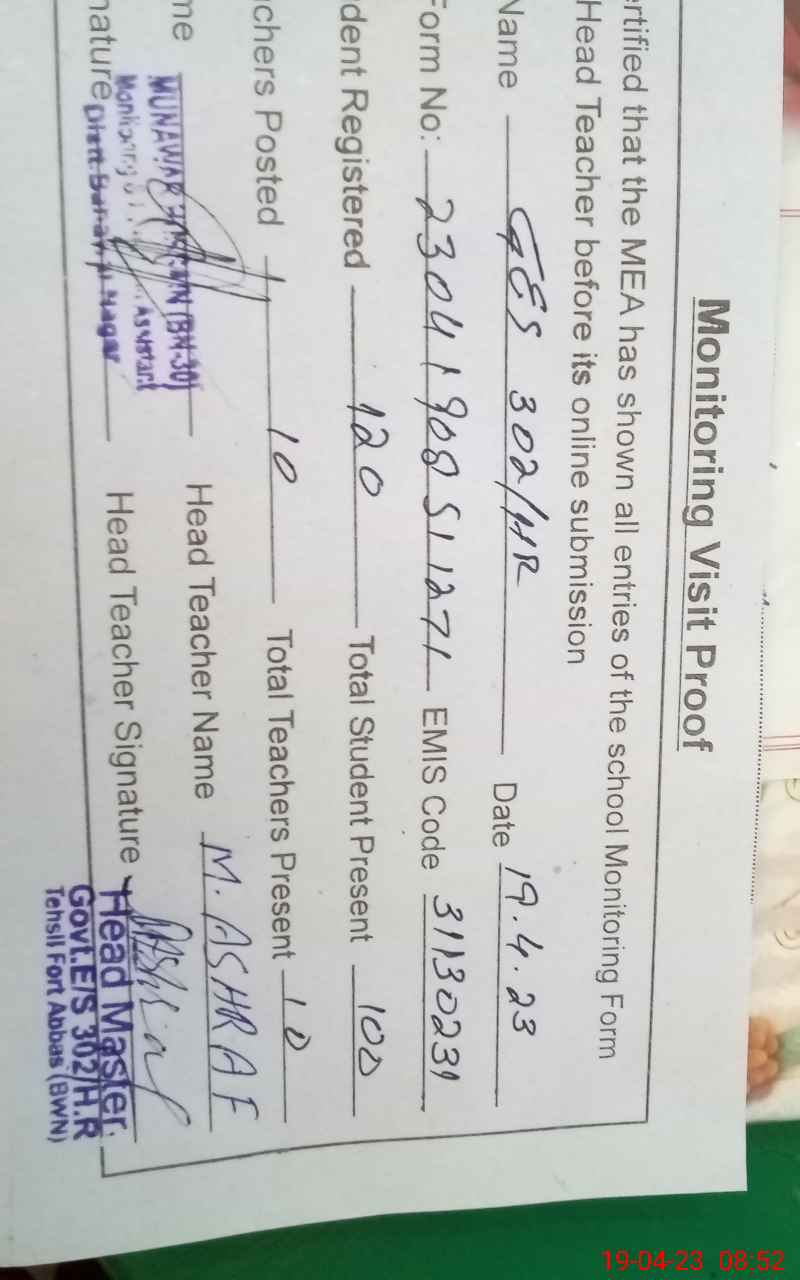 Monitoring Visit Proof
ertified that the MEA has shown all entries of the school Monitoring Form
Head Teacher before its online submission
Name GES 302/HR Date 19.4.23
Form No: 23041908511271 EMIS Code 31130231
dent Registered 120 Total Student Present 100
chers Posted 10 Total Teachers Present 10
me MUNAWAR (BN-30) Head Teacher Name M. ASHRAF
Monitoring Assistant
nature Distt. Bahawal Nagar Head Teacher Signature
Head Master.
Govt.E/S 302/H.R
Tehsil Fort Abbas (BWN)
19-04-23 08:52